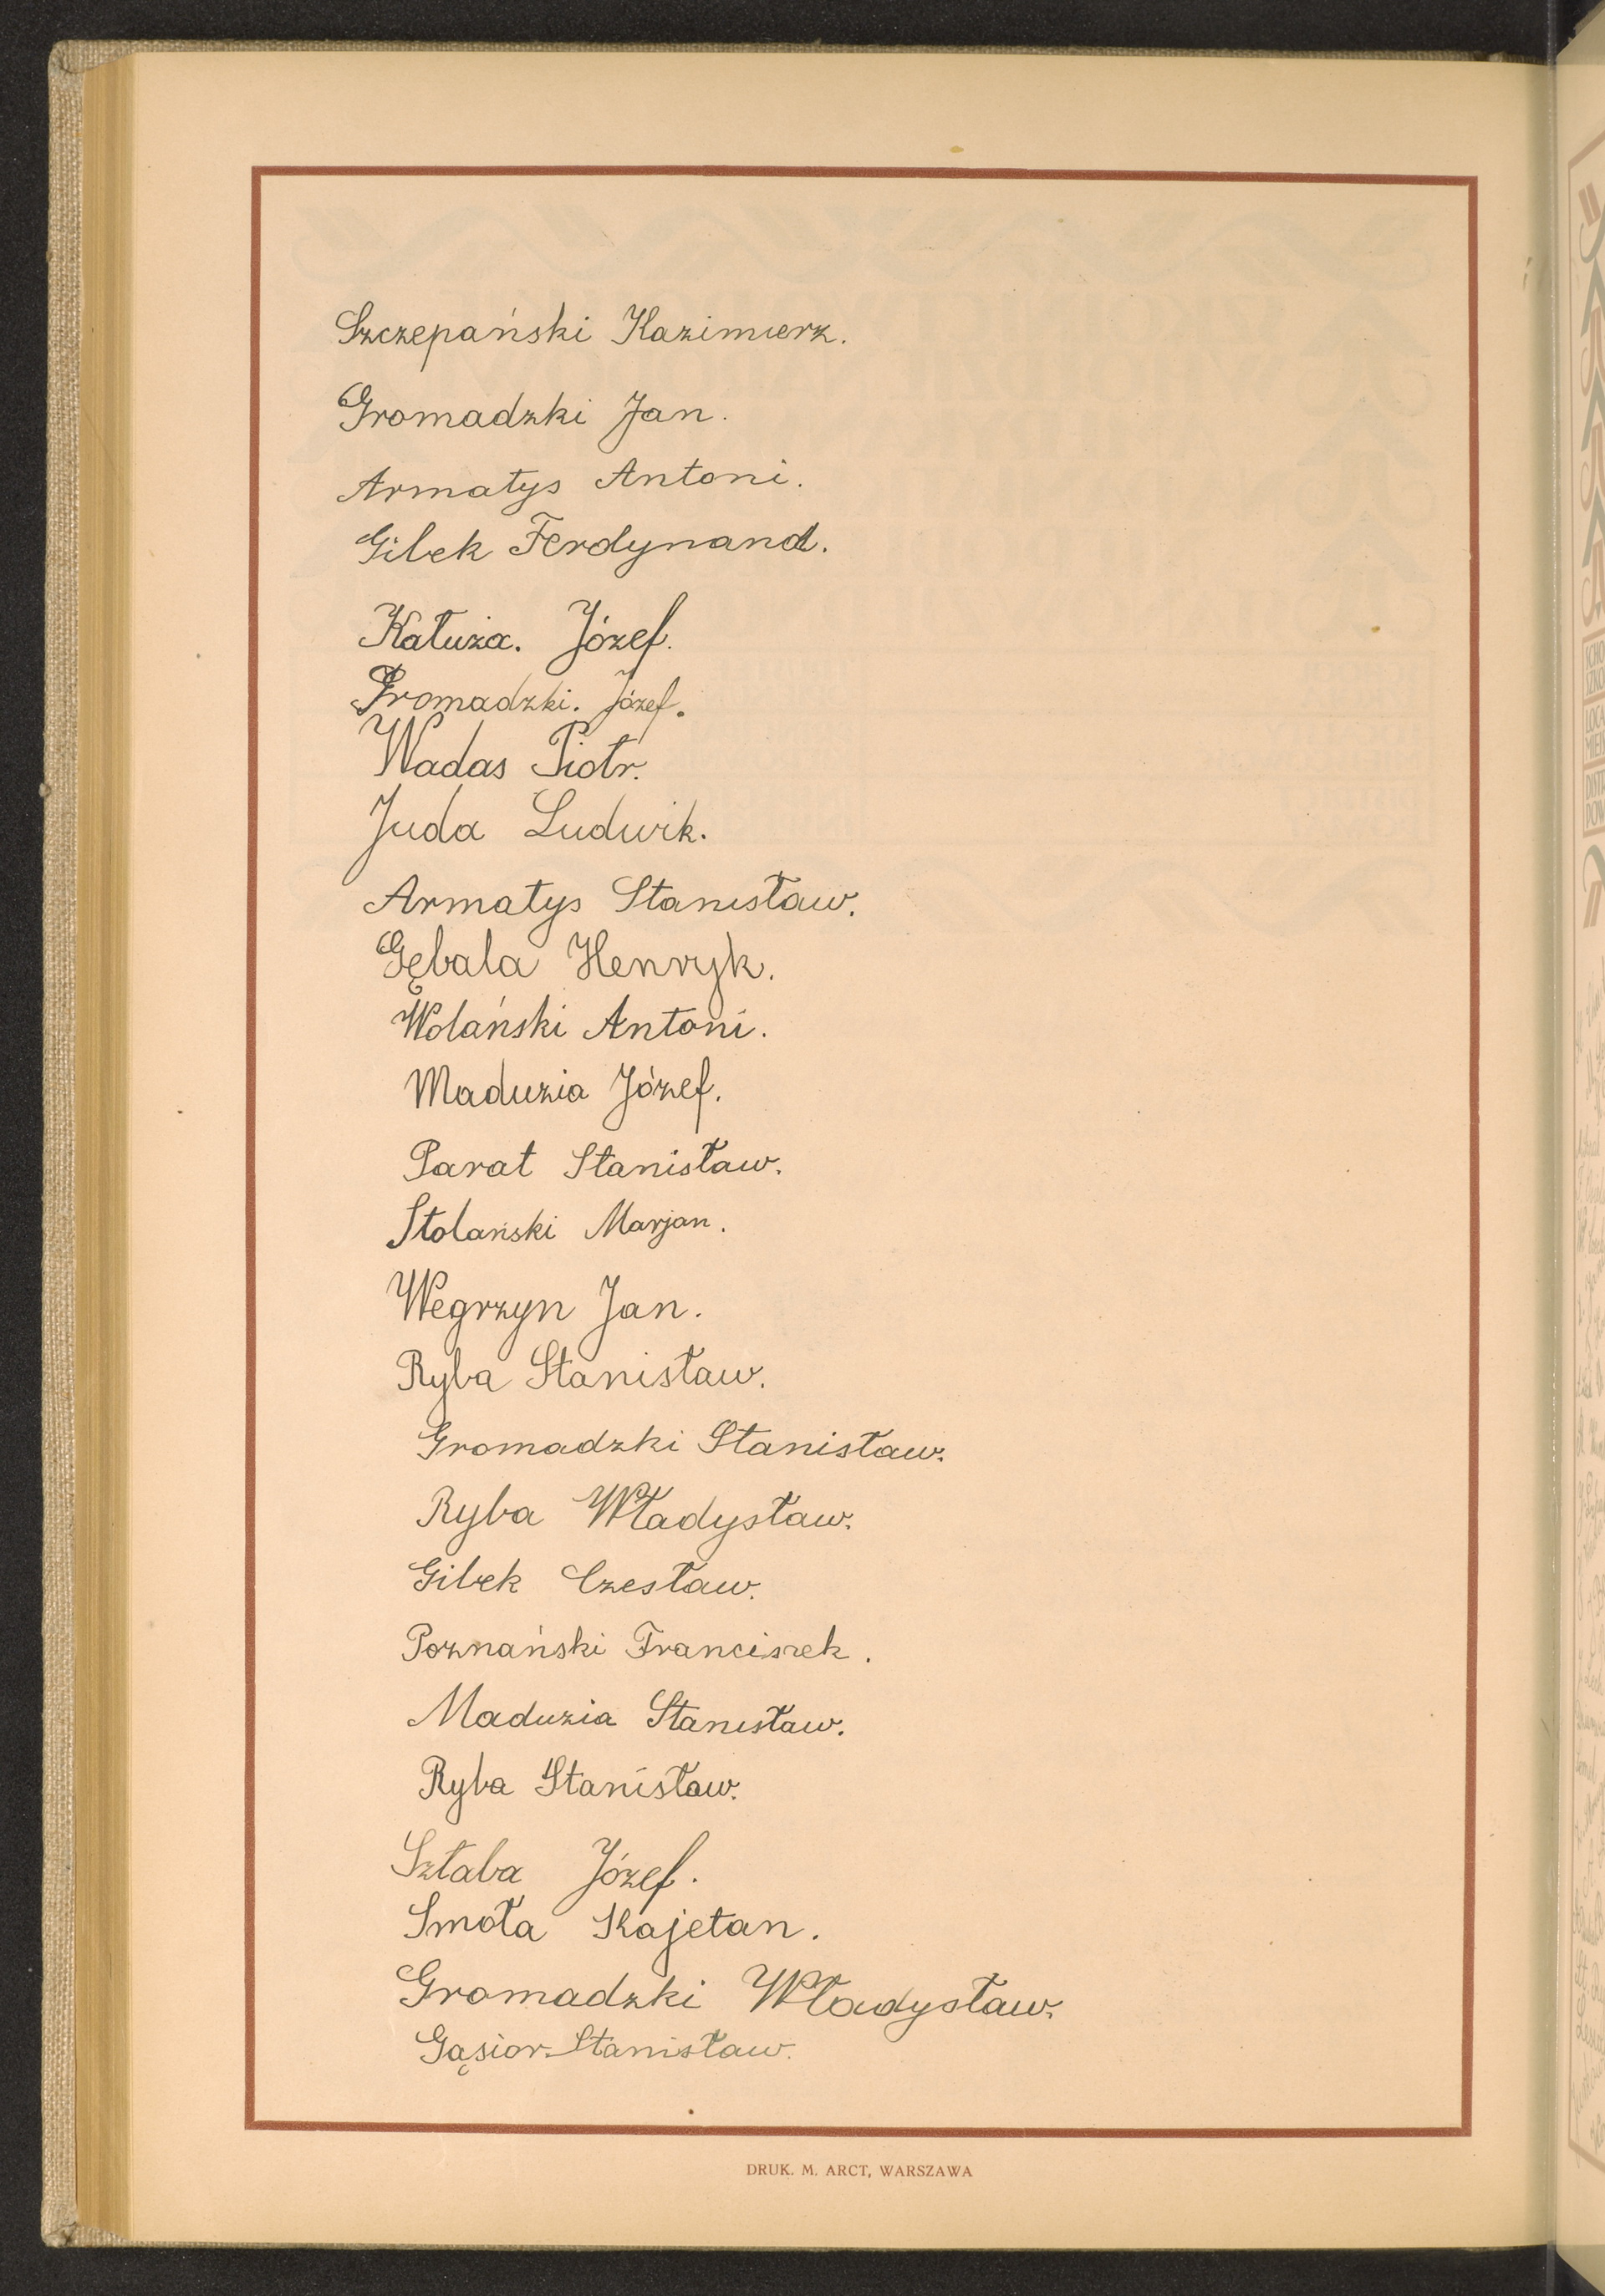 Szczepański Kazimierz.
Gromadzki Jan.
Armatys Antoni.
Gibek Ferdynand.
Kałuża. Józef.
Gromadzki. Józef.
Wadas Piotr.
Juda Ludwik.
Armatys Stanisław.
Gębala Henryk.
Wolański Antoni.
Maduzia Józef.
Parat Stanisław.
Stolański Marjan.
Wegrzyn Jan.
Ryba Stanisław.
Gromadzki Stanisław.
Ryba Władysław.
Gibek Czesław.
Poznański Franciszek.
Maduzia Stanisław.
Ryba Stanisław.
Sztaba Józef.
Smoła Kajetan.
Gromadzki Władysław.
Gąsior Stanisław.
DRUK. M. ARCT, WARSZAWA